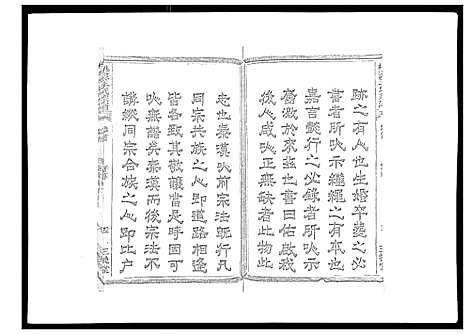 跡之有人也生婚卒葬之必
書者所以示繼繩之有本也
嘉言懿行之必錄者所以示
裔潋於來茲也書曰佑啟我
後人咸以正無缺者此物此
志也秦漢以前宗法旣行凡
同宗共族之人即道路相逢
皆各致其敬讓當是時固可
以無譜矣秦漢而後宗法不
講縱同宗合族之人即比户